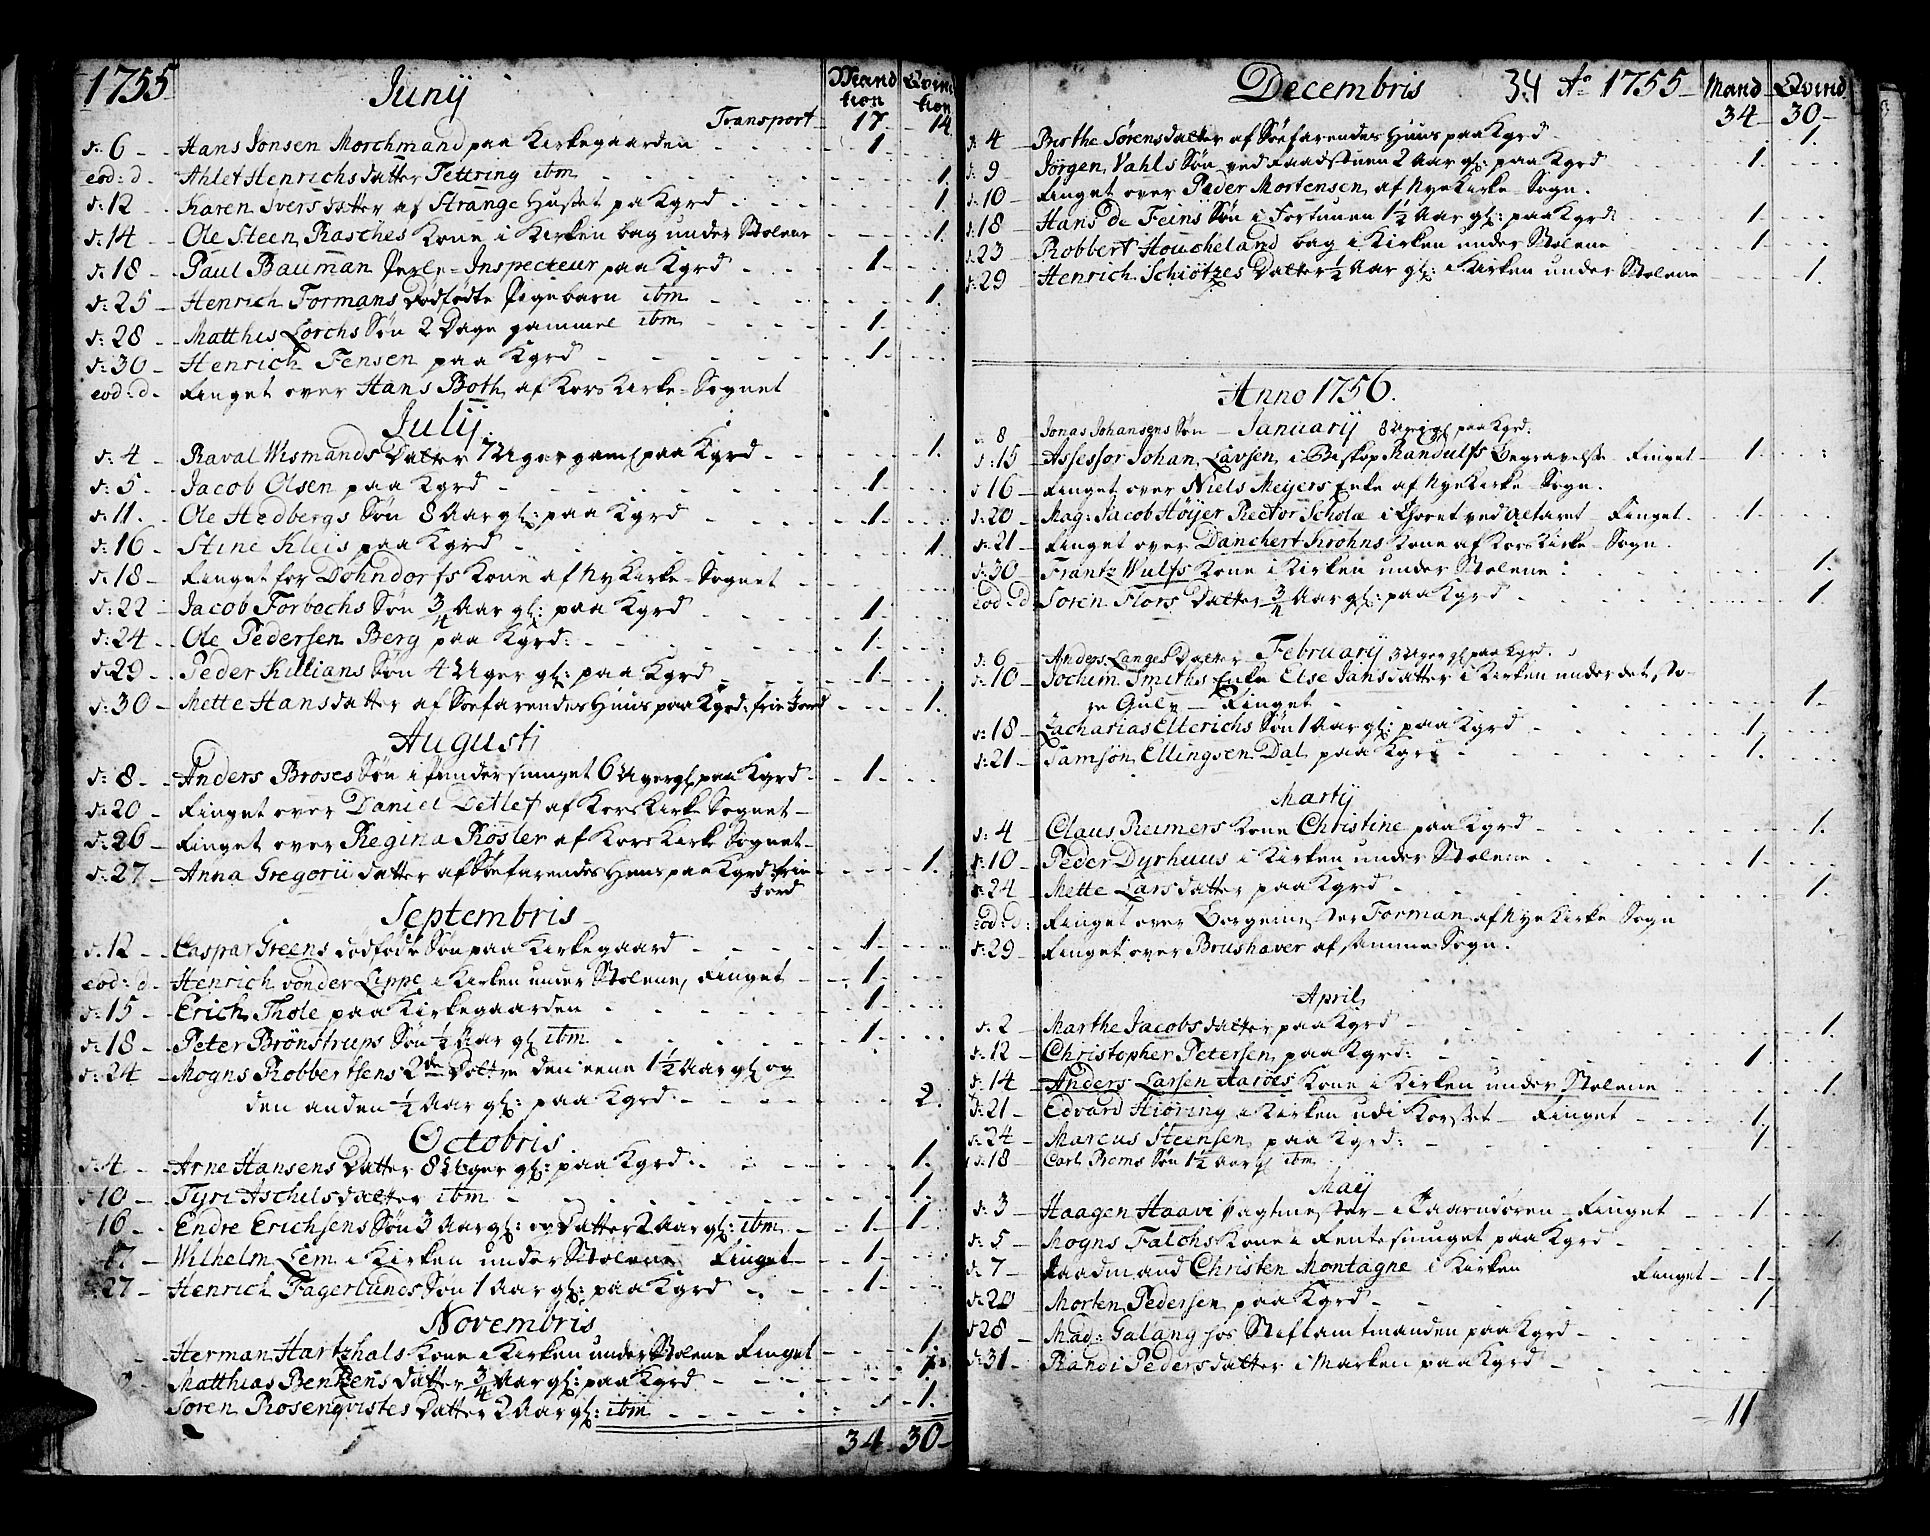 1755 Junij Mandkion Qvindkion
Transport 17 14
d: 6 Hans Jonsen Morchmand paa Kirkegaarden 1
eod: d. Ahlet Henrichsdatter Tettring ibm 1
d: 12 Karen Iversdatter af Strange Huset pa Kgrd 1
d: 14 Ole Steen Rasches Kone i Kirken bag under Stolene 1
d: 18 Paul Bauman Perle-Inspecteur paa Kgrd 1
d: 25 Henrich Formans dödfödte Pigebarn ibm 1
d: 28 Matthis Lorchs Sön 2 Dage gammel ibm 1
d: 30 Henrich Jensen paa Kgrd 1
eod: d. Ringet over Hans Both af Kors Kirke-Sognet
Julij
d: 4 Raval Wismands Datter 7 Uger gaml paa Kgrd 1
d: 5 Jacob Olsen paa Kgrd 1
d: 11 Ole Hedbergs Sön 8 Aar gl: paa Kgrd 1
d: 16 Stine Kleis paa Kgrd 1
d: 18 Ringet for Dohndorfs Kone af Ny Kirke-Sognet
d: 22 Jacob Forbochs Sön 3/4 Aar gl: paa Kgrd 1
d: 24 Ole Pedersen Berg paa Kgrd: 1
d: 29 Peder Killians Sön 4 Uger gl: paa Kgrd 1
d: 30 Mette Hansdatter af Söefarendes Huus paa Kgrd: frie Jord 1
Augusti
d: 8 Anders Broses Sön i smuget 6 Uger gl paa Kgrd 1
d: 20 Ringet over Daniel Detlef af Kors Kirke Sognet
d: 26 Ringet over Regina Rösler af Kors Kirke Sognet
d: 27 Anna Gregorii datter af Söefarendes Huus paa Kgrd: frie 1
Jord
Septembris
d: 12 Caspar Greens dödfödte Sön paa Kirkegaard 1
eod: d. Henrich vonder Lippe i Kirken under Stolene, Ringet 1
d: 15 Erich Thole paa Kirkegaarden 1
d: 18 Peter Brönstrups Sön 1/2 Aar gl ibm 1
d: 24 Mogns Robbertsens 2de Dottre den eene 1 1/2 Aar gl og
den anden 1/2 Aar gl: paa Kgrd: 2
Octobris
d: 4 Arne Hansens Datter 8 Uger gl: paa Kgrd: 1
d: 10 Tyri Aschilsdatter ibm 1
16 Endre Erichsens Sön 3 Aar gl: og Datter 2 Aar gl: ibm 1 1
17 Wilhelm Lem i Kirken under Stolene Ringet 1
27 Henrich Fagerlunds Sön 1 Aar gl: paa Kgrd 1
Novembris
Herman Hartzhals Kone i Kirken under Stolene Ringet 1
Matthias Benkens datter 3/4 Aar gl: paa Kgrd 1
Sören Rosenqvistes Datter 2 Aar gl: ibm 1
34 30
Decembris 34 Ao 1755 Mand Qvind
34 30
d: 4 Birthe Sörensdatter af Söefarendes Huus paa Kgrd 1
d: 9 Jörgen Vahls Sön ved Raadstuen 2 Aar gl: paa Kgrd 1
d: 10 Ringet over Peder Mortensen af Nye Kirke-Sogn.
d: 18 Hans De Feins Sön i Fortunen 1 1/2 Aar gl: paa Kgrd: 1
d: 23 Robbert Houcheland bag i Kirken under Stolene 1
d: 29 Henrich Schiötzes Datter 1/2 Aar gl: i Kirken under Stolene 1
Anno 1756.
d: 8 Jonas Johansens Sön Januarij 8 Uger gl paa Kgrd:
d: 15 Assessor Johan Lavsen i Biskop Randulfs Begravelse Ringet 1
d 16 Ringet over Niels Meijers Enke af Nye Kirke-Sogn.
d: 20 Mag: Jacob Höijer Rector Scholæ i Choret ved Altaret Ringet 1
d: 21 Ringet over Danchert Krohns Kone af Kors Kirke-Sogn.
d: 30 Frantz Wulfs Kone i Kirken under Stolene: 1
eod: d. Sören Flors Datter 3/4 Aar gl: paa Kgrd 1
d: 6 Anders Langes Datter Februarij 3 Uger gl paa Kgrd.
d: 10 Jochim Smiths Enke Else Jansdatter i Kirken under det sto-
re Gulv Ringet 1
d: 18 Zacharias Elterichs Sön 1 Aar gl: paa Kgrd 1
d: 21 Samson Ellingsen Dal paa Kgrd 1
Martij
d: 4 Claus Reimers Kone Christine paa Kgrd 1
d: 10 Peder Dyrhuus i Kirken under Stolene 1
d: 24 Mette Larsdatter paa Kgrd 1
eod: d: Ringet over Borgemester Forman af Nye Kirke-Sogn
d: 29 Ringet over Brushaver af samme Sogn.
April
d: 2 Marthe Jacobsdatter paa Kgrd 1
d: 12 Christopher Petersen paa Kgrd: 1
d: 14 Anders Larsen Aaröes Kone i Kirken under Stolene 1
d: 21 Edvard Hiöring i Kirken udi Korsset Ringet 1
d: 24 Marcus Steensen paa Kgrd: 1
d: 18 Carl Bems Sön 1 1/2 Aar gl ibm
Maij
d: 3 Haagen Haavi Vagtmester i Taarndören Ringet 1
d: 5 Mogns Falchs Kone i Rentesmuget paa Kgrd 1
d: 7 Raadmand Christen Montagne i Kirken Ringet 1
d: 20 Morten Pedersen paa Kgrd 1
d 28 Mad: Galang hos Stiftamtmanden paa Kgrd
d: 31 Randi Pedersdatter i Marken paa Kgrd
11